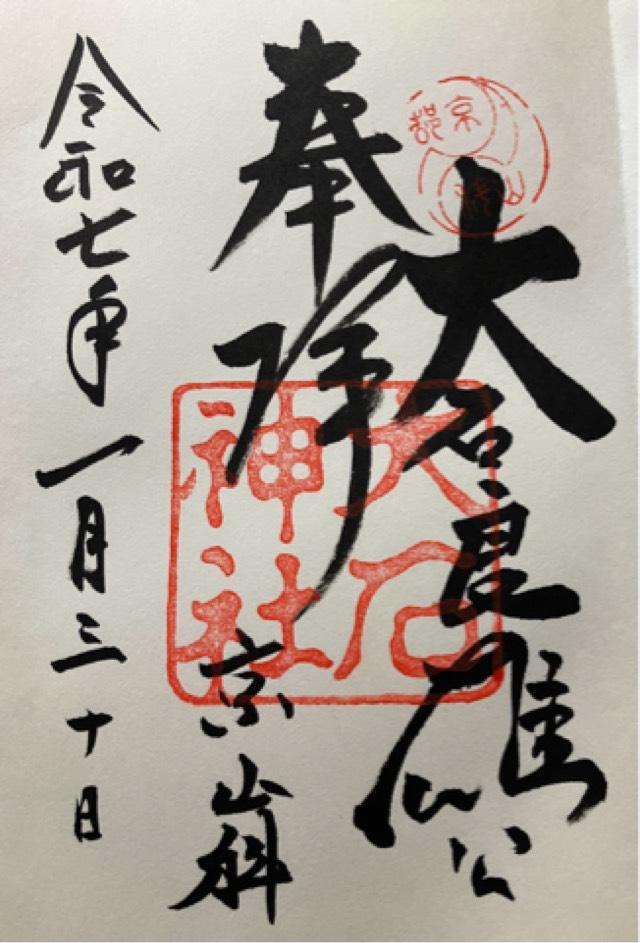 奉拝
大石良雄公
京山科
大石神社
京都
山科
令和七年一月三十日